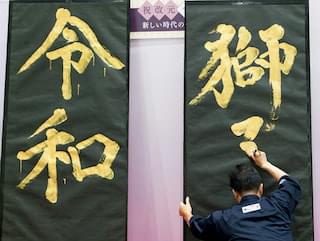 祝改元
新しい時代の
令和
獅子